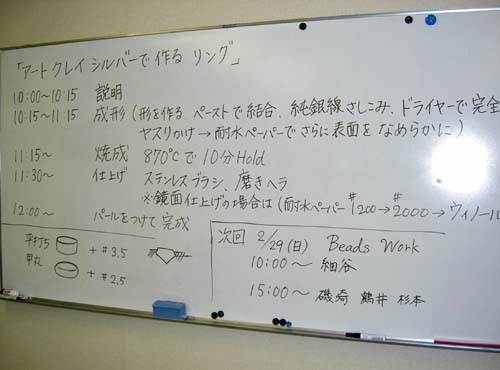 「アートクレイシルバーで作る リング」
10:00～10:15 説明
10:15～11:15 成形（形を作る ペーストで結合、純銀線さしこみ、ドライヤーで完全
ヤスリかけ→耐水ペーパーでさらに表面を なめらかに）
11:15～ 焼成 870℃で10分Hold
11:30～ 仕上げ ステンレスブラシ、磨きヘラ
※鏡面仕上げの場合は（耐水ペーパー #1200→#2000→ウィノール
12:00～ パールをつけて完成
平打ち + #3.5
甲丸 + #2.5
次回 2/29(日) Beads Work
10:00～ 細谷
15:00～ 磯崎 鶴井 杉本